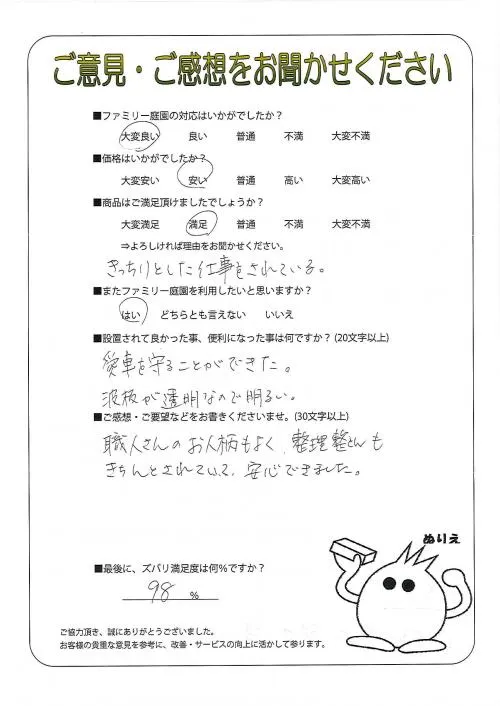 ご意見・ご感想をお聞かせください
■ファミリー庭園の対応はいかがでしたか？
大変良い 良い 普通 不満 大変不満
■価格はいかがでしたか？
大変安い 安い 普通 高い 大変高い
■商品はご満足頂けましたでしょうか？
大変満足 満足 普通 不満 大変不満
⇒よろしければ理由をお聞かせください。
きっちりとした仕事をされている。
■またファミリー庭園を利用したいと思いますか？
はい どちらとも言えない いいえ
■設置されて良かった事、便利になった事は何ですか？(20文字以上)
愛車を守ることができた。
波板が透明なので明るい。
■ご感想・ご要望などをお書きくださいませ。(30文字以上)
職人さんのお人柄もよく、整理整とんも
きちんとされていて、安心できました。
ぬりえ
■最後に、ズバリ満足度は何％ですか？
98 %
ご協力頂き、誠にありがとうございました。
お客様の貴重な意見を参考に、改善・サービスの向上に活かして参ります。